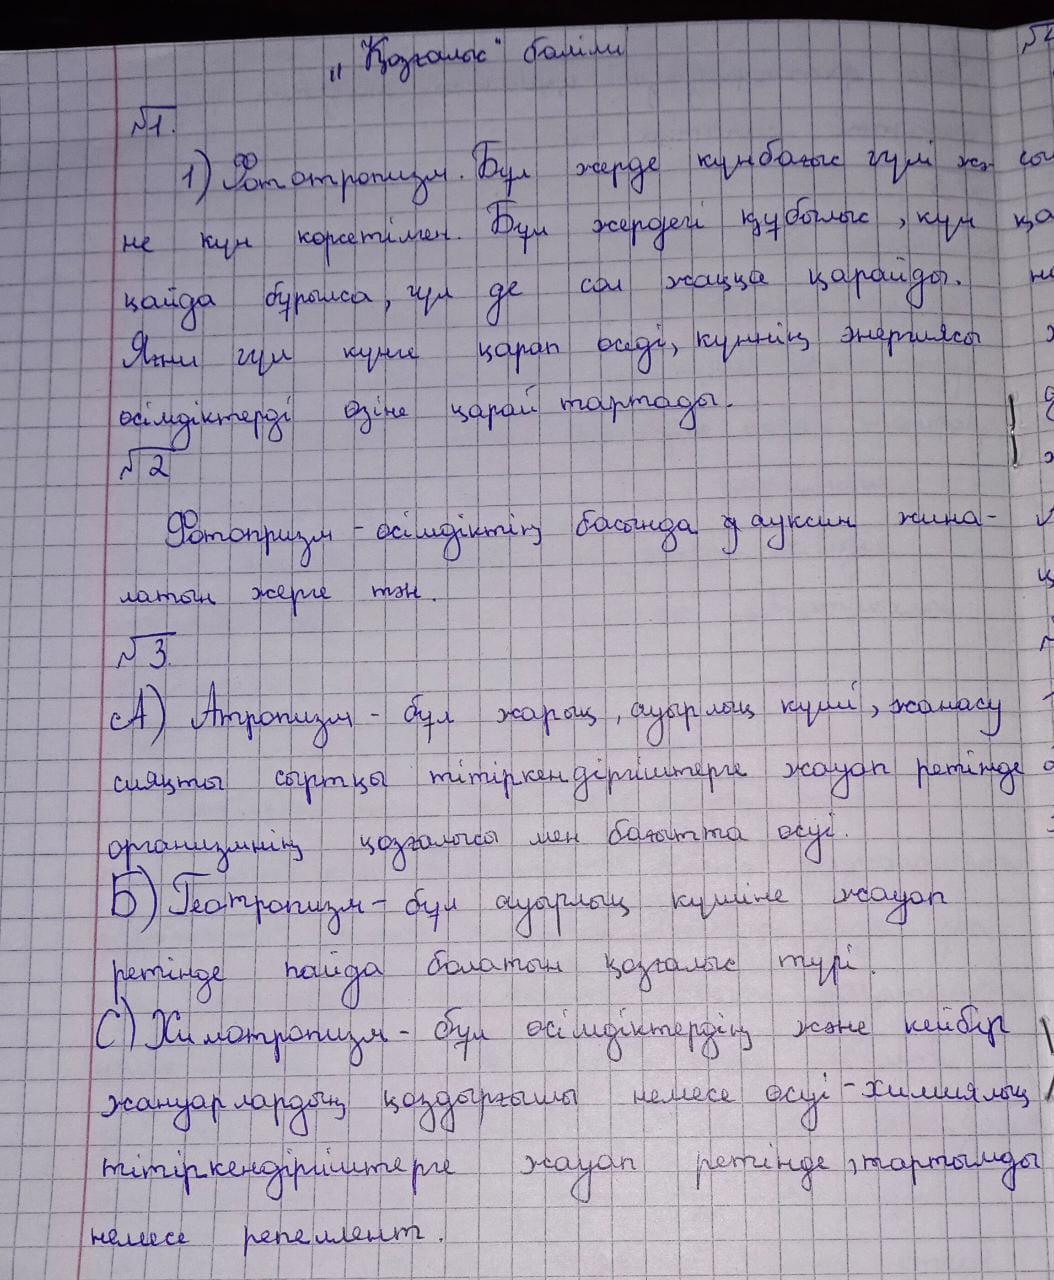 „Қозғалыс" бөлімі
№1.
1) Фототропизм. Бұл жерде күнбағыс гүлі жә
не күн көрсетілген. Бұл жердегі құбылыс, күн
қайда бұрылса, гүл де сол жаққа қарайды.
Яғни гүл күнге қарап өседі, күннің энергиясы
өсімдіктерді өзіне қарай тартады.
№2
Фотопризм - өсімдіктің басында ауксин жина-
латын жерге тән.
№3.
А) Атропизм - бұл жарық, ауырлық күші, жанасу
сияқты сыртқы тітіркендіргіштерге жауап ретінде
организмнің қозғалысы мен бағытта өсуі.
Б) Геотропизм - бұл ауырлық күшіне жауап
ретінде пайда болатын қозғалыс түрі.
С) Химотропизм - бұл өсімдіктердің және кейбір
жануарлардың қоздырғышы немесе өсуі - химиялық
тітіркендіргіштерге жауап ретінде, тартымды
немесе репеллент.